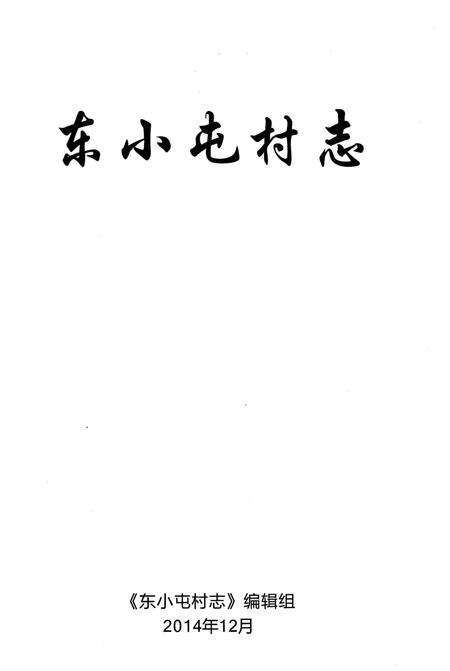 东小屯村志
《东小屯村志》编辑组
2014年12月